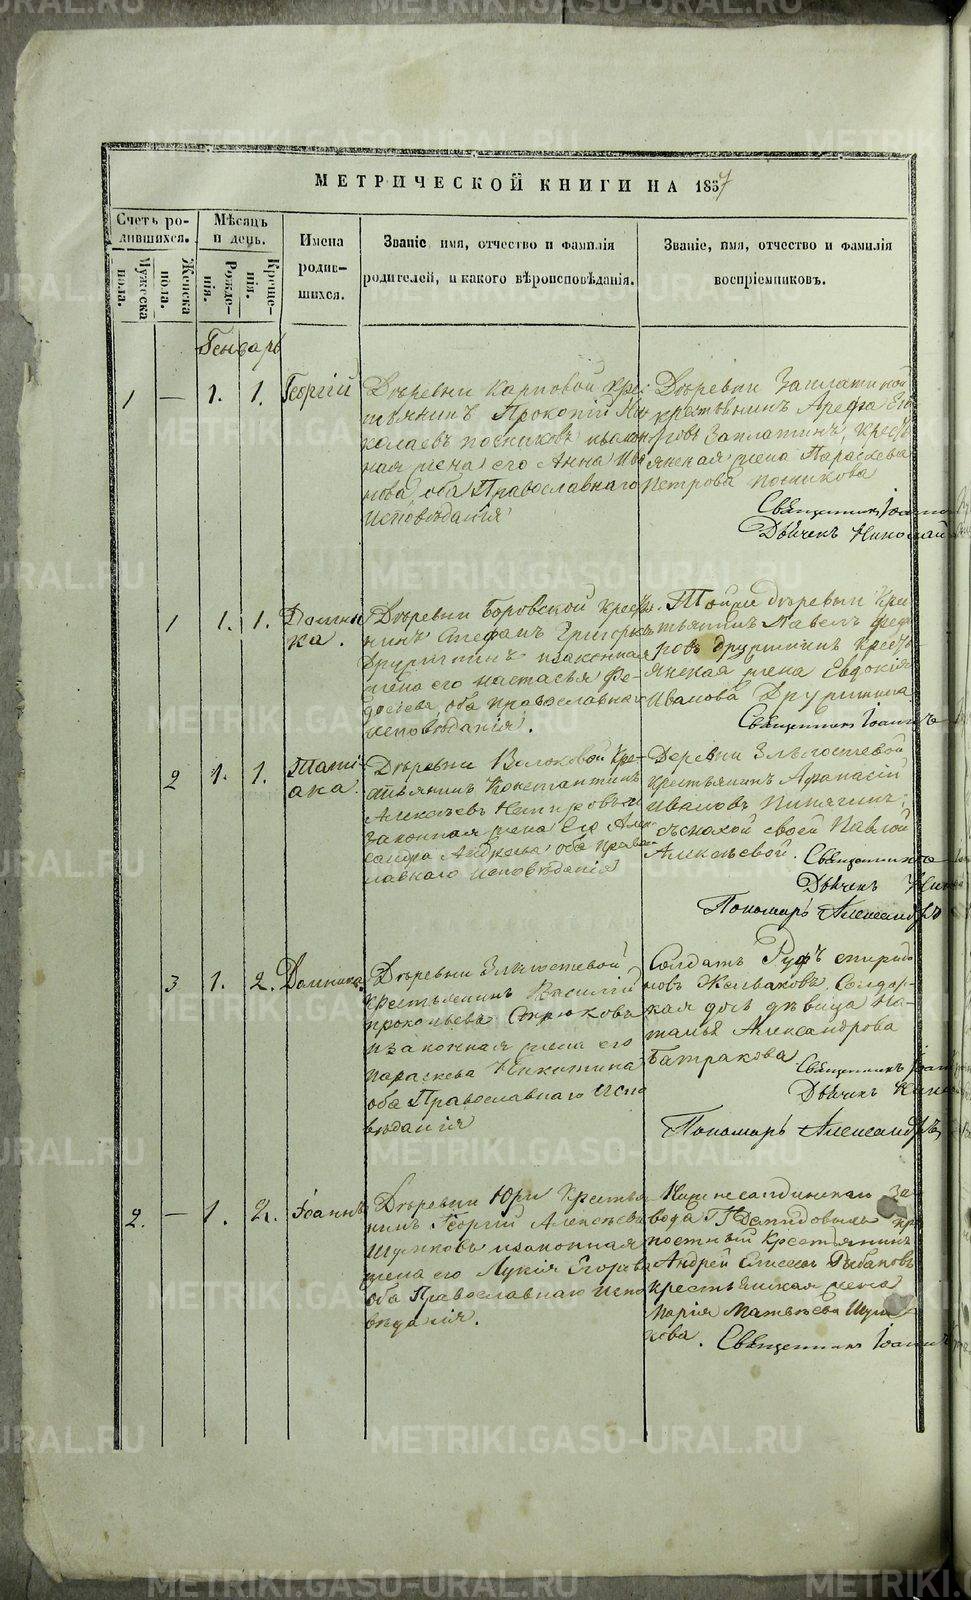 МЕТРИЧЕСКОЙ КНИГИ НА 1857
Счетъ ро-
дившихся.
Мѣсяцъ
и день.
Имена
родив-
шихся.
Званіе, имя, отчество и фамилія
родителей, и какого вѣроисповѣданія.
Званіе, имя, отчество и фамилія
воспріемниковъ.
Мужеска
пола.
Женска
пола.
Рожде-
нія.
Креще-
нія.
Генварь
1 — 1. 1. Георгій
Дѣревни Карповой Кре-
стьянинъ Прокопій Ни
колаевъ посниковъ изакон
ная жена его Анна Ива
нова, оба Православнаго
Исповѣданія
Дѣревни Заплатиной
крестьянинъ Арефа Его
ровъ Заплатинъ, Кресть
янская жена Параскева
Петрова Посникова
Священникъ Іоаннъ
Дьячекъ Николай
1 1. 1. Домни
ка.
Дѣревни Боровской Кресть
нинъ Стефанъ Григорьевъ
Другининъ изаконная
жена его Настасья Фе-
досіева, оба Православнаго
исповѣданія.
Тойже дѣревни Кре
стьянинъ Павелъ Федо
ровъ Кресть
янская жена Евдокія
Иванова
Священникъ Іоаннъ
2 1. 1. Тати
ана.
Дѣревни Волоковой Кре-
стьянинъ Константинъ
Алексѣевъ
законная жена Его Алек-
сандра Андреева оба Право
славнаго Исповѣданія
Деревни
Крестьянинъ Афанасій
Ивановъ
съ снохой своей Павлой
Алексѣевой. Священникъ
Дьячекъ Ник
Пономарь Александръ
3 1. 2. Домника.
Дѣревни
Крестьянинъ Василій
прокопьевъ Стрюковъ
изаконная жена его
параскева Никитина
оба Православнаго Испо
вѣданія
Солдатъ Руфъ спиридо
новъ Желваковъ, Солдат
ская дочь дѣвица На-
талья Александрова
Батракова
Священникъ Іоаннъ
Дьячекъ Ник
Пономарь Александръ
2. — 1. 2. Іоаннъ
Дѣревни Юри Крестья
нинъ Георгій Алексѣевъ
изаконная
жена его Лукія Егорова
оба Православнаго Испо
вѣданія.
Нижнесалдинскаго За
вода Г. Демидовыхъ кре
постный Крестьянинъ
Андрей Рыбаковъ
крестьянская жена
Марія Матвѣева
кова. Священникъ Іоаннъ
METRIKI.GASO-URAL.RU